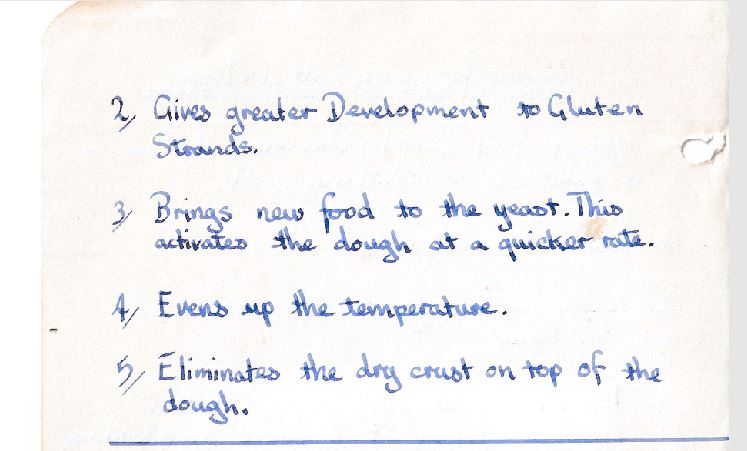 2, Gives greater Development to Gluten
Strands.
3, Brings new food to the yeast. This
activates the dough at a quicker rate.
4, Evens up the temperature.
5, Eliminates the dry crust on top of the
dough.